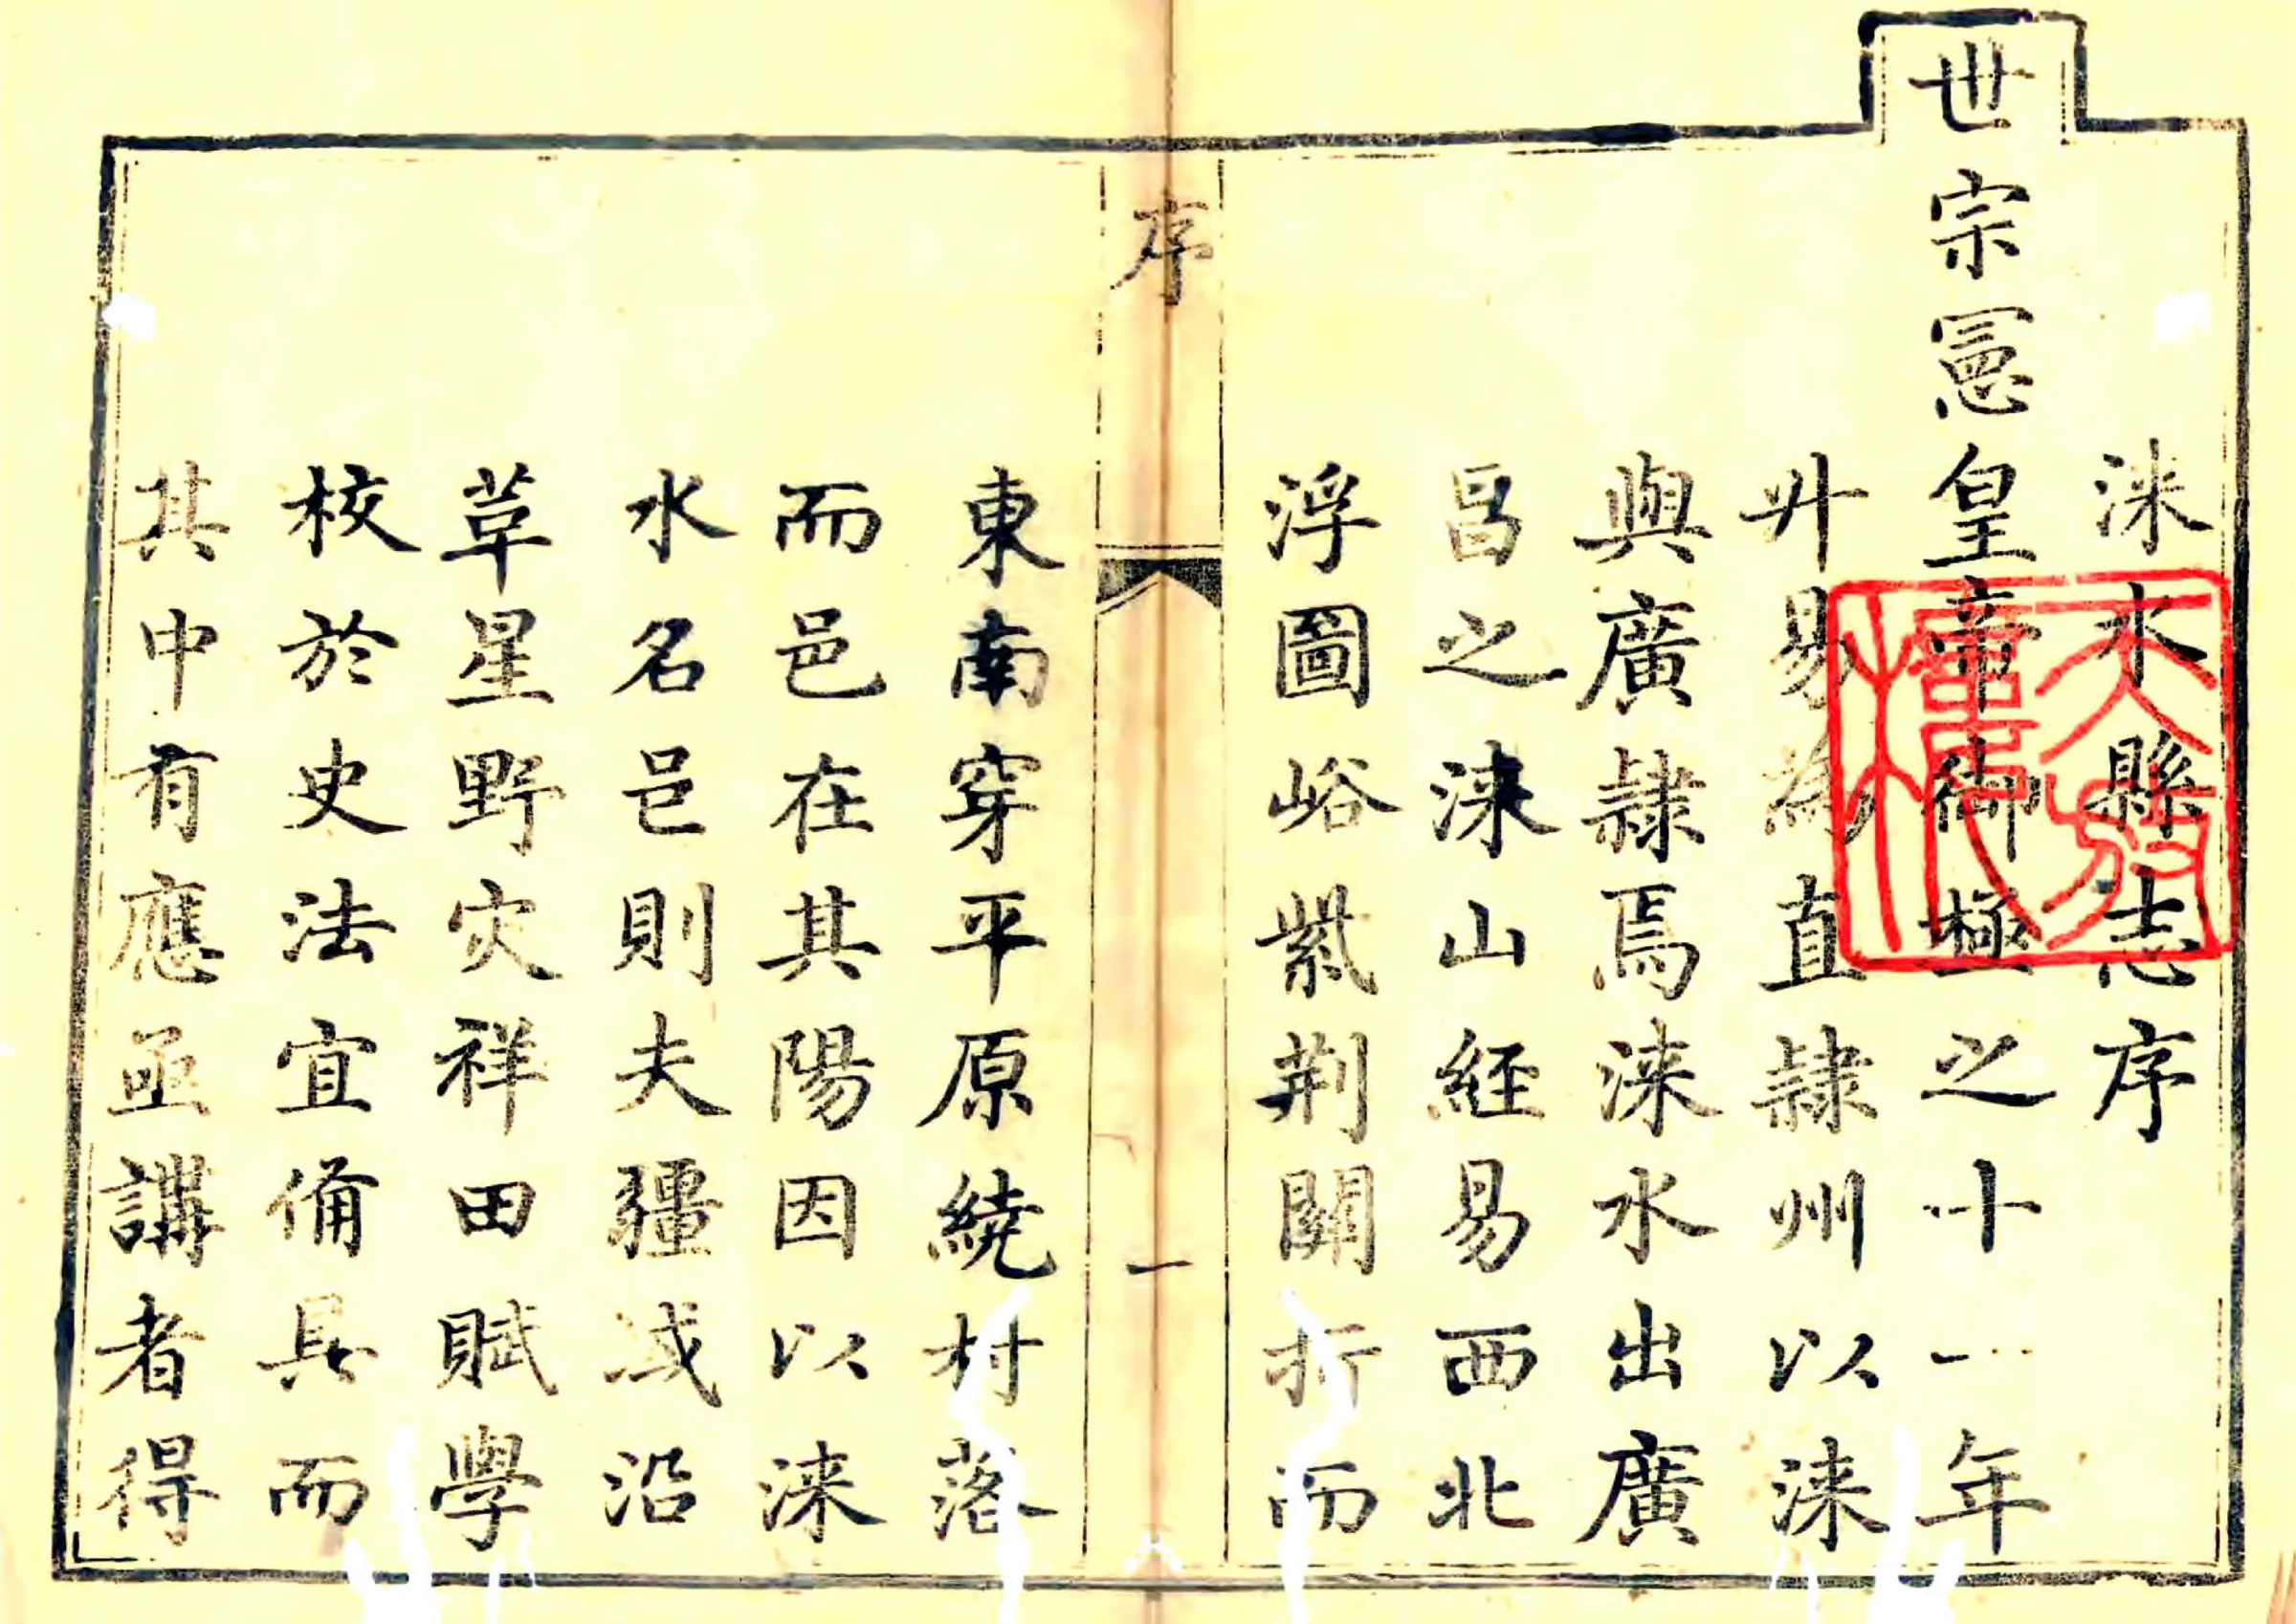 淶水縣志序
世宗憲皇帝御極之十一年
升易為直隷州以淶
與廣隷焉淶水出廣
昌之淶山経易西北
浮圖峪紫荆關折而
序
一
東南穿平原繞村落
而邑在其陽因以淶
水名邑則夫疆域沿
革星野灾祥田賦學
校於史法宜備具而
其中有應亟講者得